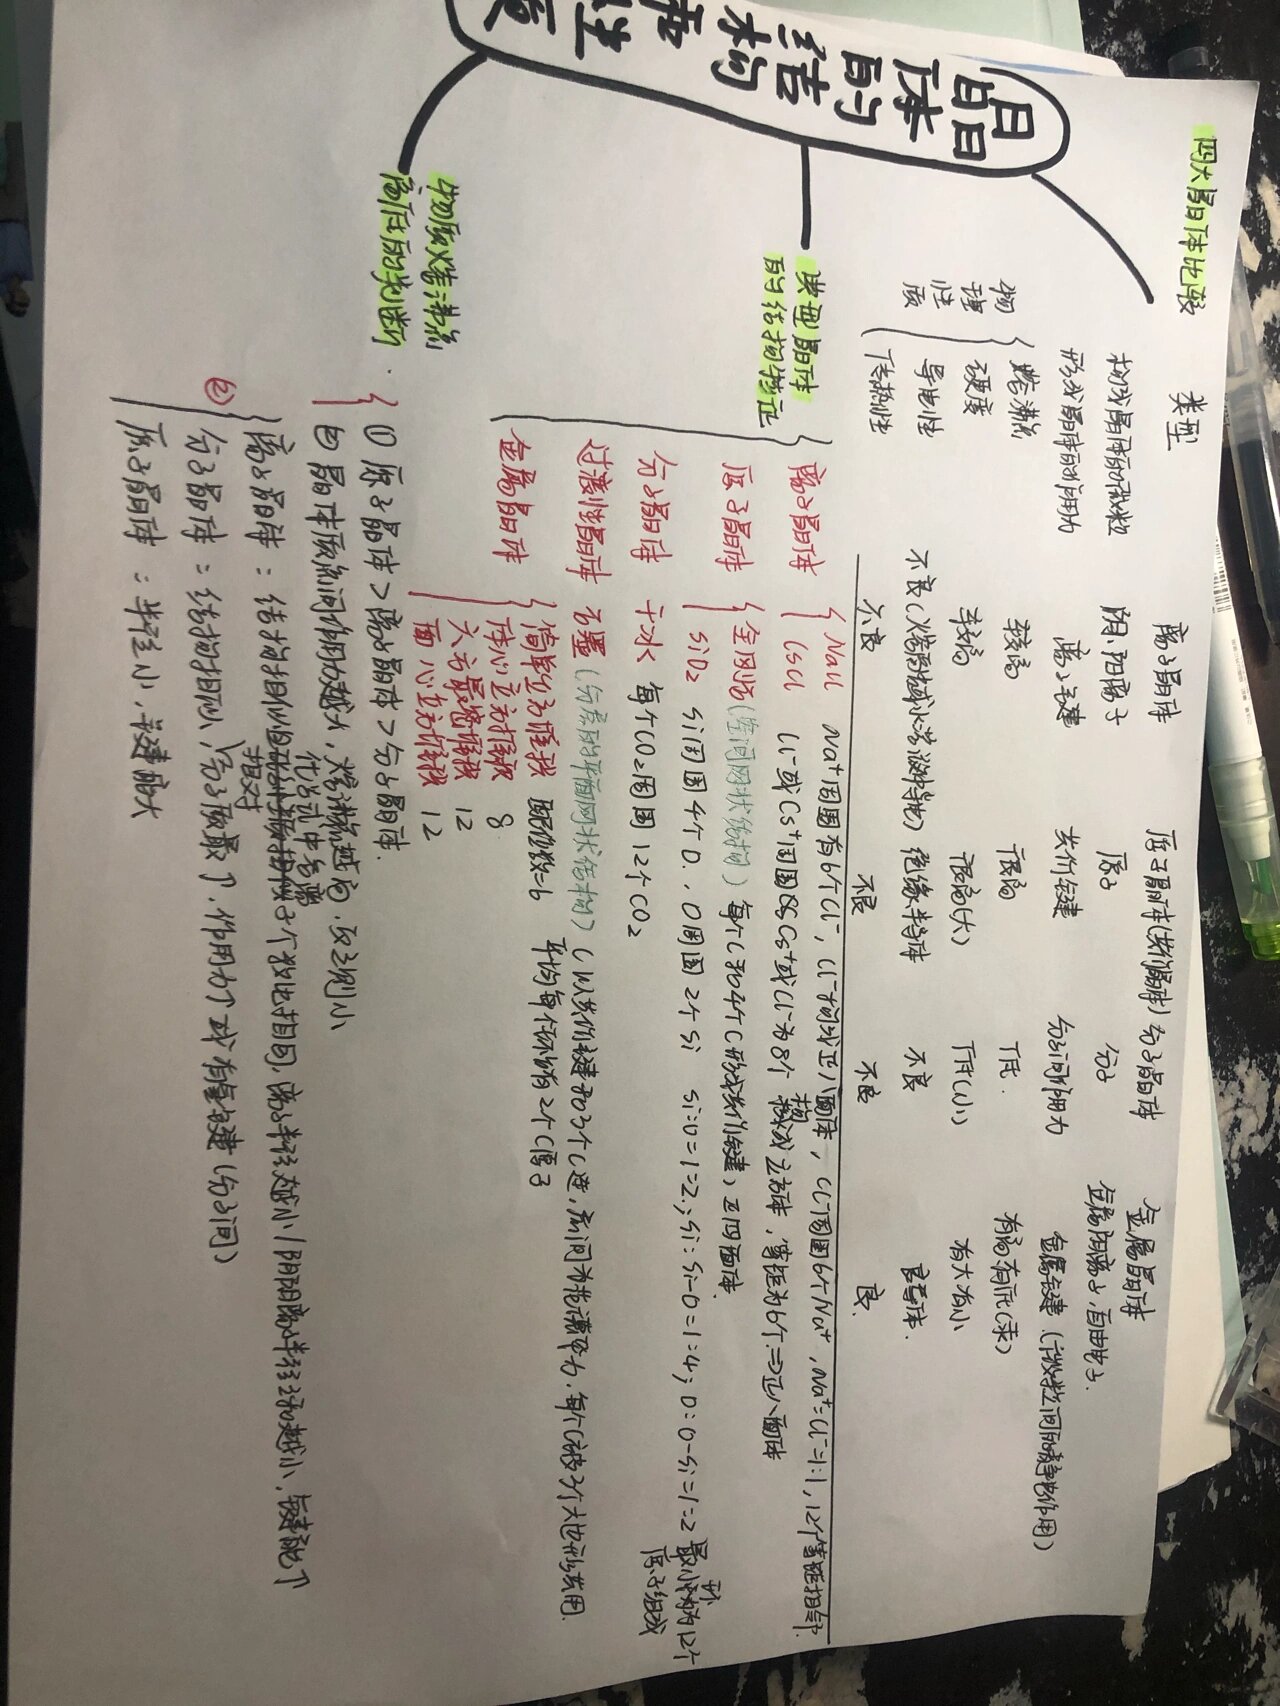 晶体的结构和性质
四大晶体比较
类型 离子晶体 原子晶体(共价晶体) 分子晶体 金属晶体
构成晶体的微粒 阴、阳离子 原子 分子 金属阳离子,自由电子.
形成晶体的作用力 离子键 共价键 分子间作用力 金属键(微粒间的静电作用)
物理性质
熔沸点 较高 很高 低. 有高有低(汞)
硬度 较高 很高(大) 低(小) 有大有小
导电性 不良(熔融或水溶液中导电) 绝缘、半导体 不良 良导体.
传热性 不良 不良 不良 良.
典型晶体的结构特征
离子晶体 NaCl Na⁺周围有6个Cl⁻,Cl⁻构成正八面体,Cl⁻周围6个Na⁺,Na⁺:Cl⁻=1:1,12个等距相等.
CsCl Cl⁻或Cs⁺周围Cs⁺或Cl⁻为8个 构成立方体,等距为6个⇒正八面体
原子晶体 金刚石(空间网状结构) 每个C和4个C形成共价键,正四面体.
SiO2 Si周围4个O.,O周围2个Si Si:O=1:2;Si:Si-O=1:4;O:O-Si=1:2 最小环为12个原子组成
分子晶体 干冰 每个CO2周围12个CO2
过渡性晶体 石墨(分层的平面网状结构)(以共价键和3个C连,层间为范德华力,每个C被3个六边形共用.
平均每个环占有2个C原子
金属晶体 简单立方堆积 配位数=6
体心立方堆积 8
六方最密堆积 12
面心立方堆积 12
物质熔沸点高低的判断
① 原子晶体>离子晶体>分子晶体.
② 晶体微粒间作用力越大,熔沸点越高,反之则小
离子晶体:结构相似且化学式中各离子个数比相同,离子半径越小/阴阳离子半径之和越小,键能个
分子晶体:结构相似,相对分子质量↑,作用力↑ 或有氢键(分子间)
原子晶体:半径小、键能大